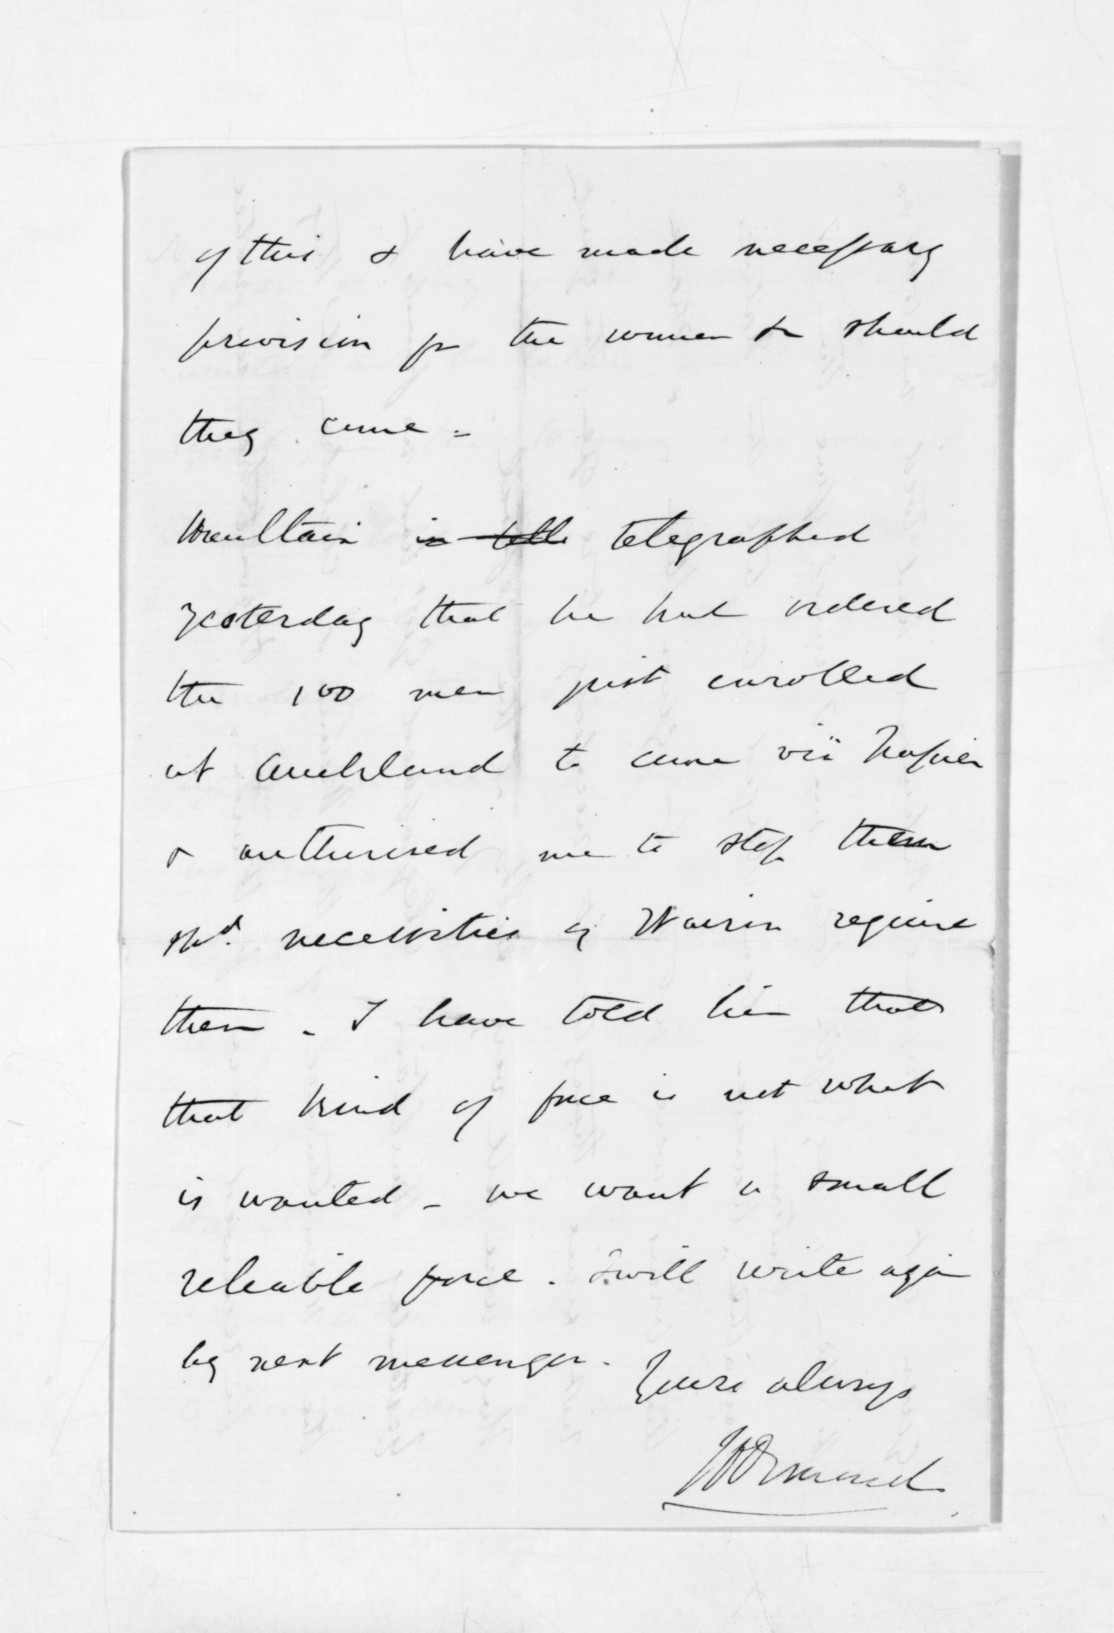 of this & have made necessary
provision for the women &c should
they come -
Haultain is tells telegraphed
yesterday that he had ordered
the 100 men just enrolled
at Auckland to come via Napier
& authorised me to stop them
shd. necessities of Wairoa require
them - I have told him that
that kind of force is not what
is wanted - we want a small
reliable force. I will write again
by next messenger.
Yours always
JD Ormond